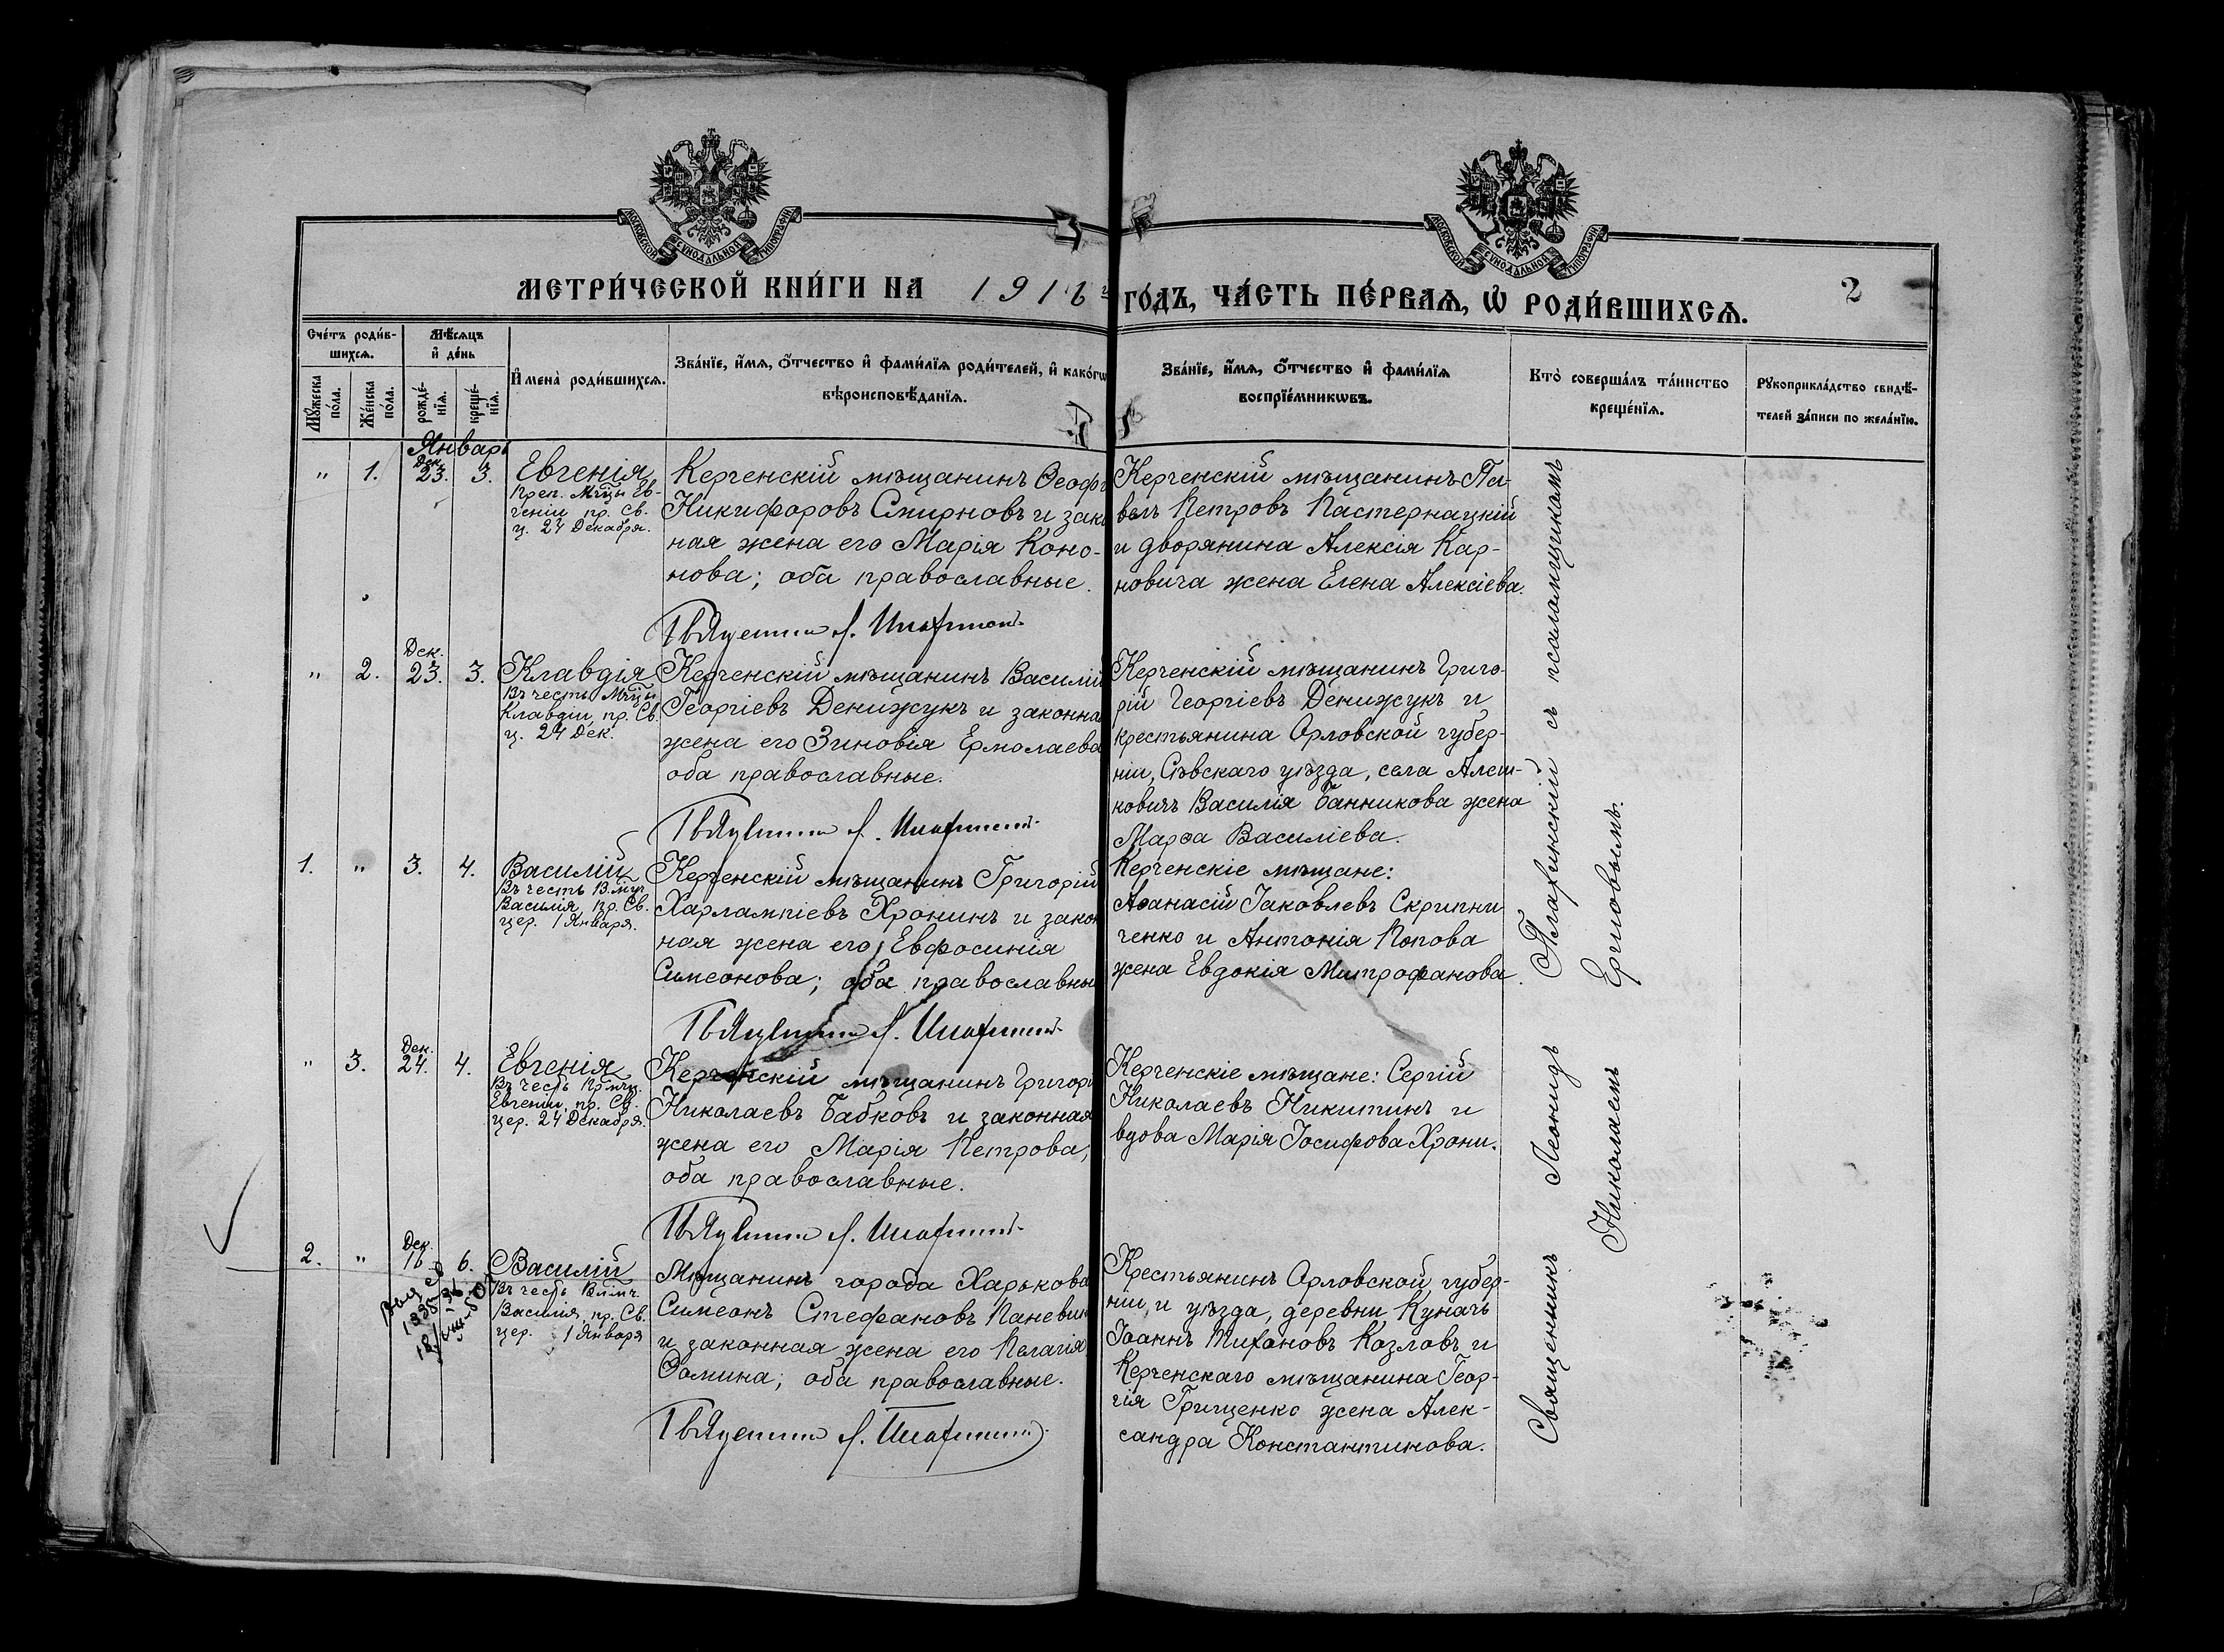 МОСКОВСКОЙ СѴНОДАЛЬНОЙ ТИПОГРАФІИ
МОСКОВСКОЙ СѴНОДАЛЬНОЙ ТИПОГРАФІИ
МЕТРИ́ЧЕСКОЙ КНИ́ГИ НА 191
ГО́ДЪ, ЧА́СТЬ ПЕ́РВАѦ, Ѡ҆ РОДИ́ВШИХСѦ.
2
Сче́тъ роди́в-
шихсѧ.
Мѣ́сѧцъ
и҆ де́нь
Мꙋ́жеска
по́ла.
Же́нска
по́ла.
рожде́-
нїѧ.
креще́-
нїѧ.
И҆мена̀ роди́вшихсѧ.
Зва́нїе, и҆́мѧ, ѻ҆́тчество и҆ фами́лїѧ роди́телей, и҆ како́гѡ
вѣроисповѣ́данїѧ.
Зва́нїе, и҆́мѧ, ѻ҆́тчество и҆ фами́лїѧ
воспрїе́мникѡвъ.
Кто̀ соверша́лъ та́инство
креще́нїѧ.
Рꙋкоприкла́дство свидѣ́-
телей за́писи по жела́нїю.
Январь
" 1. Дек. 23. 3. Евгенія
Преп. Мчцы Ев-
геніи пр. Св.
ц. 24 Декабря.
Керченскій мѣщанинъ Ѳеоф
Никифоровъ Смирновъ и зако
ная жена его Марія Коно-
нова; оба православные.
Керченскій мѣщанинъ Па-
велъ Петровъ Пастернацкій
и дворянина Алексія Кар-
новича жена Елена Алексіева.
" 2. Дек. 23. 3. Клавдія
Въ честь Мчцы
Клавдіи, пр. Св.
ц. 24 Дек.
Керченскій мѣщанинъ Василій
Георгіевъ Денижукъ и законна
жена его Зиновія Ермолаева
оба православные.
Керченскій мѣщанинъ Григо-
рій Георгіевъ Денижукъ и
крестьянина Орловской губер-
ніи, Сѣвскаго уѣзда, села Алеш-
ковичъ Василія Банникова жена
Марѳа Василіева.
1. " 3. 4. Василій
Въ честь
Василія, пр. Св.
цер. 1 Января.
Керченскій мѣщанинъ Григорій
Харлампіевъ Хронинъ и закон
ная жена его Евфросинія
Симеонова; оба православны
Керченскіе мѣщане:
Аѳанасій Іаковлевъ Скрипни
ченко и Антонія Попова
жена Евдокія Митрофанова.
" 3. Дек. 24. 4. Евгенія
Въ честь Прмчц.
Евгеніи, пр. Св.
цер. 24 Декабря.
Керченскій мѣщанинъ Григорі
Николаевъ Бабковъ и законная
жена его Марія Петрова,
оба православные.
Керченскіе мѣщане: Сергій
Николаевъ Никитинъ и
вдова Марія Іосифова Хрони.
2. " Дек. 6. Василій
Въ честь
Василія, пр. Св.
цер. 1 Января
Мѣщанинъ города Харькова
Симеонъ Стефановъ Паневин
и законная жена его Пелагія
Ѳомина; оба православные.
Крестьянинъ Орловской губер-
ніи, и уѣзда, деревни Куначь
Іоаннъ Тихоновъ Козловъ и
Керченскаго мѣщанина Геор-
гія Грищенко жена Алек-
сандра Константинова.
Священникъ Леонидъ съ псаломщикомъ
Николаемъ